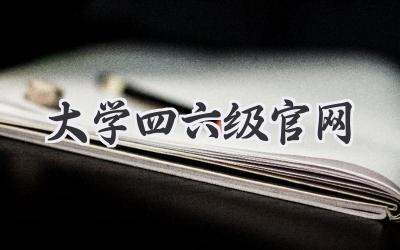 大学四六级官网